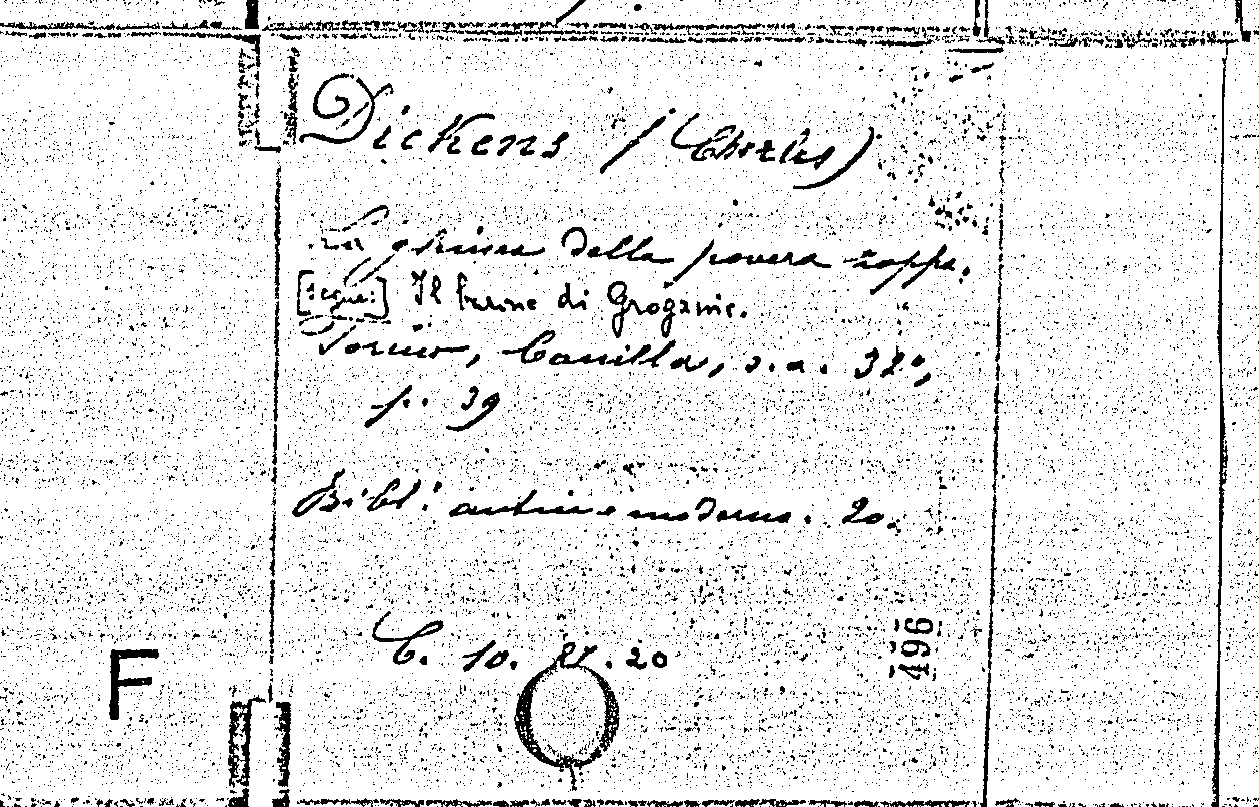 Dickens (Charles)
La gruccia della povera zoppa.
[segue:] Il barone di Grogzwig.
Torino, Canilla, s.a. 32°,
p. 39
Bibl. antica e moderna. 20.
C. 10. 27. 20
496
F